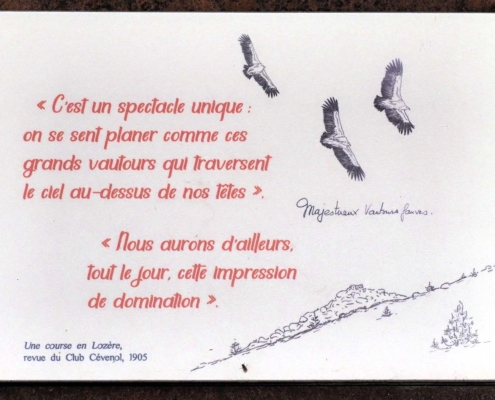 « C'est un spectacle unique :
on se sent planer comme ces
grands vautours qui traversent
le ciel au-dessus de nos têtes ».
Majestueux Vautours fauves.
« Nous aurons d'ailleurs,
tout le jour, cette impression
de domination ».
Une course en Lozère,
revue du Club Cévenol, 1905